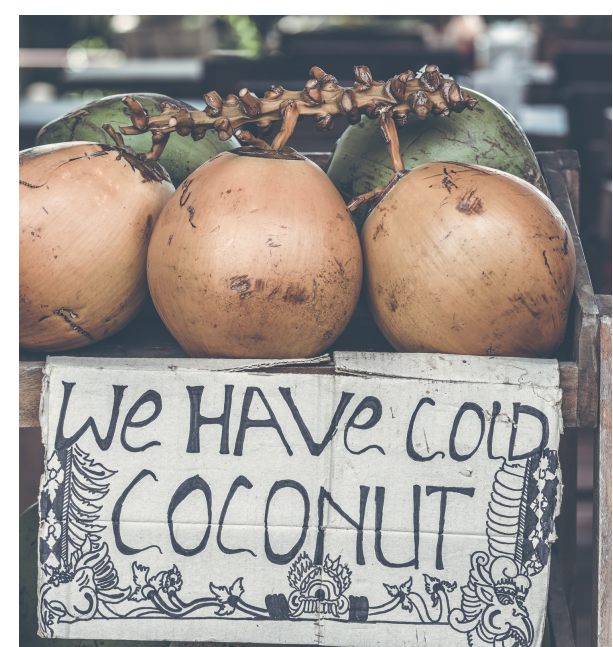 We HAVe COLD
COCONUT